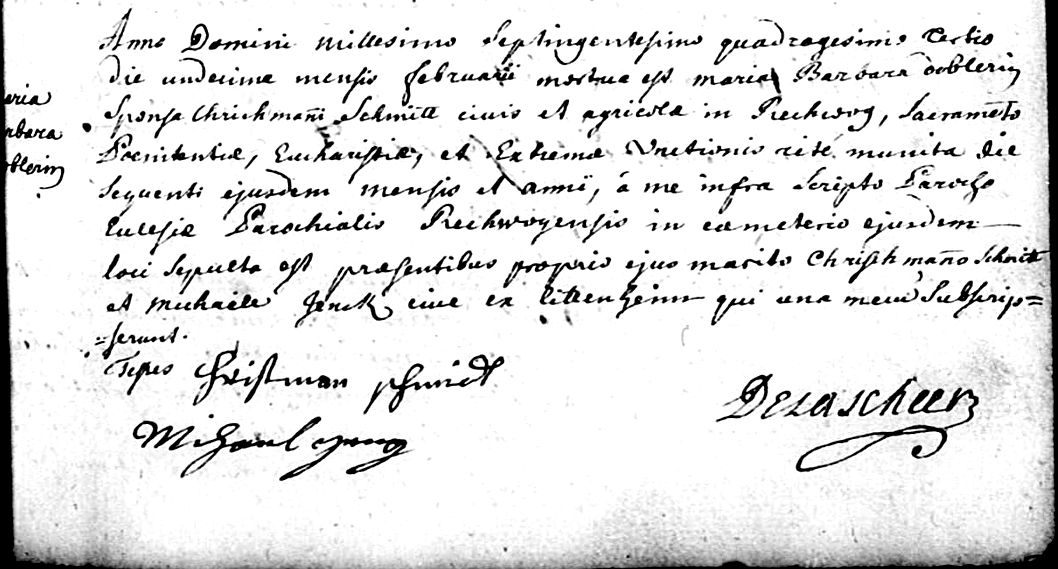 Anno Domini Millesimo Septingentesimo quadragesimo tertio
die undecima mensis februarii mortua est maria Barbara Doblerin
Sponsa Chrichmani Schmitt civis et agricolæ in Reckwog, Sacrameto
Pœnitentiæ, Eucharistiæ, et Extremæ Unctionis ritè munita die
Sequenti ejusdem mensis et anni, à me infra Scripto Parocho
Eclesiæ Parochialis Reckwogensis in cœmeterio ejusdem
loci Sepulta est præsentibus proprio ejus marito Christmano Schmitt
et Michaele cive ex qui una mecu Subscrip=
=serunt.
Testes Christman Schmidt
Michael
eria
rbara
oblerin